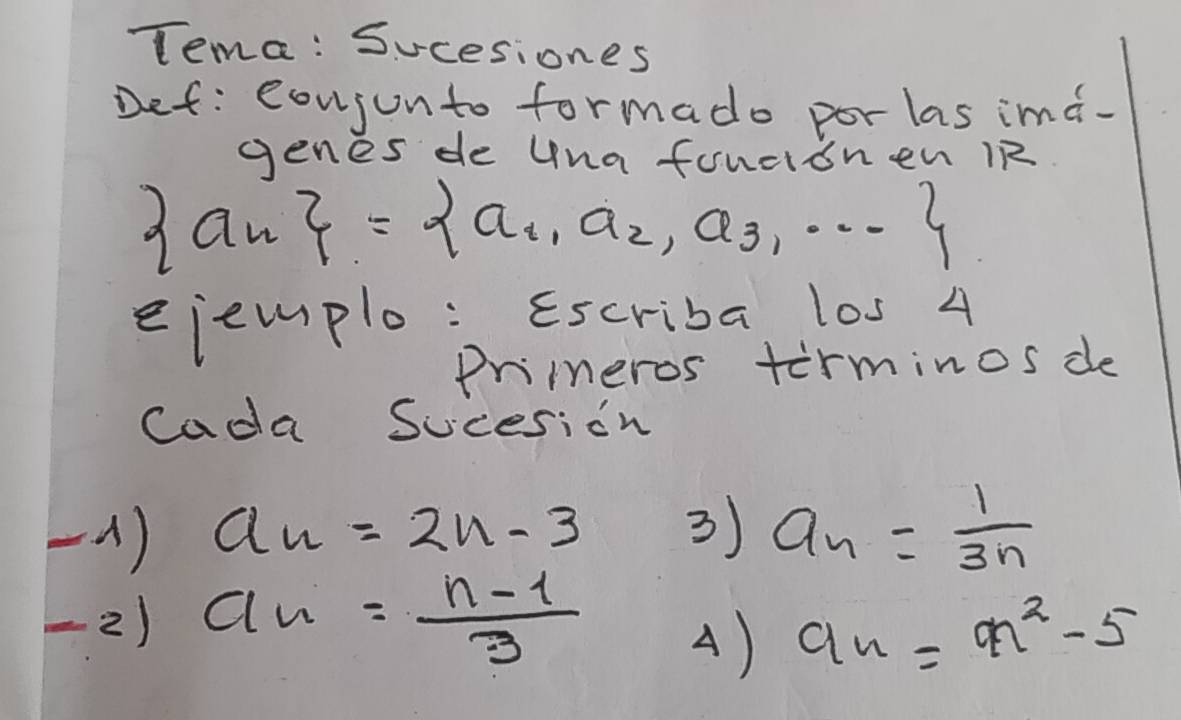 Tema: Sucesiones
Def: Conjunto formado por las imá-
genes de una función en IR.
{an} = {a1, a2, a3, ... }
ejemplo: Escriba los 4
Primeros términos de
Cada Sucesión
1) an = 2n - 3
2) an = n - 1 / 3
3) an = 1 / 3n
4) an = n² - 5